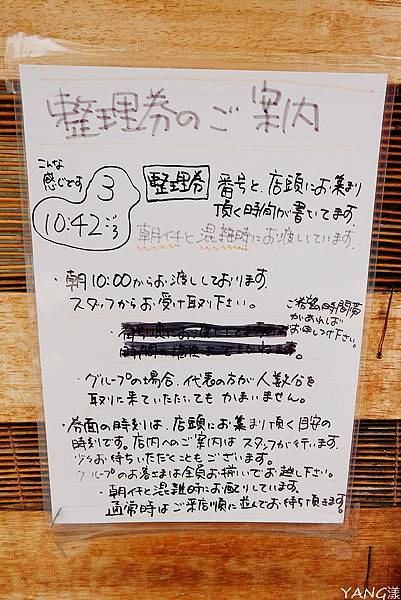 整理券のご案内
こんな
感じです
3
10:42ごろ
整理券
番号と、店頭にお集まり
頂く時間が書いてます。
朝イチと混雑時にお渡ししています。
・朝10:00からお渡ししております。
スタッフからお受け取り下さい。
ご希望時間帯
があれば
お申しつけ下さい。
・グループの場合、代表の方が人数分を
取りに来ていただいてもかまいません。
・券面の時刻は、店頭にお集まり頂く目安の
時刻です。店内へのご案内はスタッフが行います。
少々お待ちいただくこともございます。
グループのお客さまは全員お揃いでお越し下さい。
・朝イチと混雑時にお配りしています。
通常時はご来店順に並んでお待ち頂きます。
YANG漾